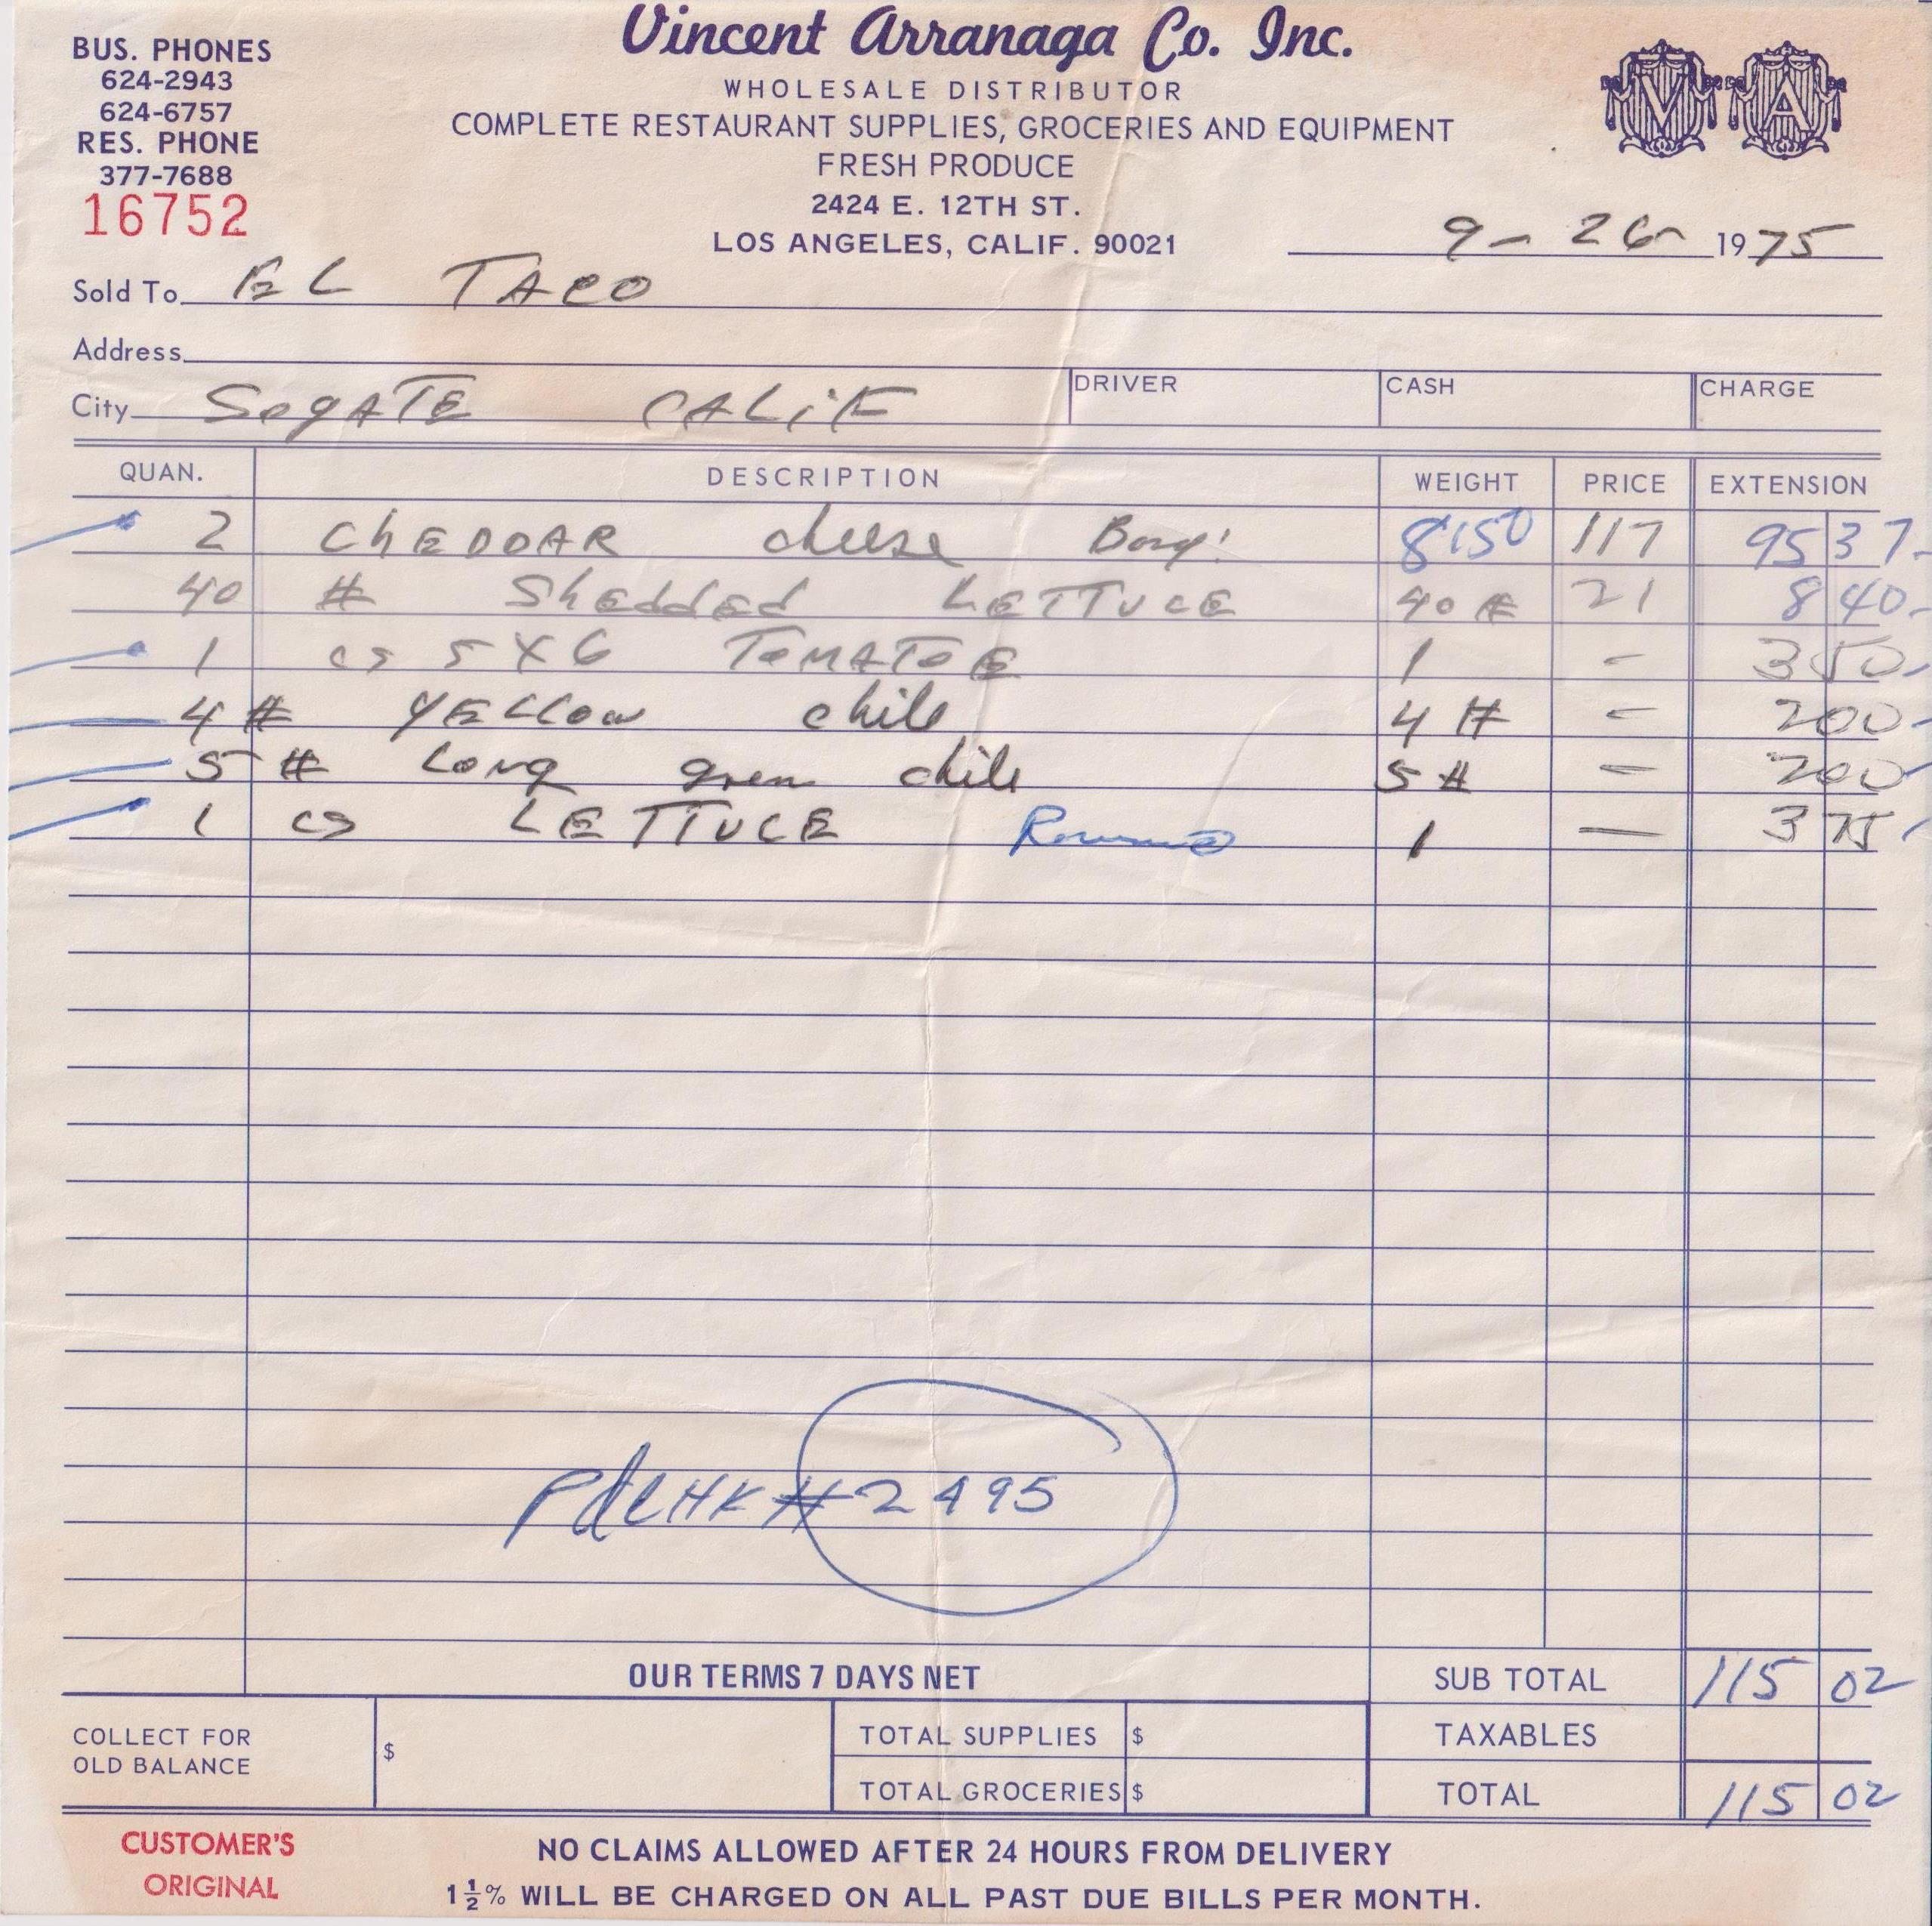 Vincent Arranaga Co. Inc.
WHOLESALE DISTRIBUTOR
COMPLETE RESTAURANT SUPPLIES, GROCERIES AND EQUIPMENT
FRESH PRODUCE
2424 E. 12TH ST.
LOS ANGELES, CALIF. 90021
BUS. PHONES
624-2943
624-6757
RES. PHONE
377-7688
16752
V A
9-26- 1975
Sold To EL TACO
Address
City SogATE CALIF
DRIVER CASH CHARGE
QUAN. DESCRIPTION WEIGHT PRICE EXTENSION
2 ChEDDAR cheese 8150 117 95 37
40 # ShEddEd LETTUCE 40 # 21 8 40
1 cs 5 X 6 TOMATOE 1 - 3 50
4 # YELLOW chile 4 # - 2 00
5 # Long green chile 5 # - 2 00
1 cs LETTUCE 1 — 3 75
Pd CHK # 2495
OUR TERMS 7 DAYS NET SUB TOTAL 115 02
COLLECT FOR OLD BALANCE $ TOTAL SUPPLIES $ TAXABLES
TOTAL GROCERIES $ TOTAL 115 02
CUSTOMER'S ORIGINAL
NO CLAIMS ALLOWED AFTER 24 HOURS FROM DELIVERY
1½% WILL BE CHARGED ON ALL PAST DUE BILLS PER MONTH.